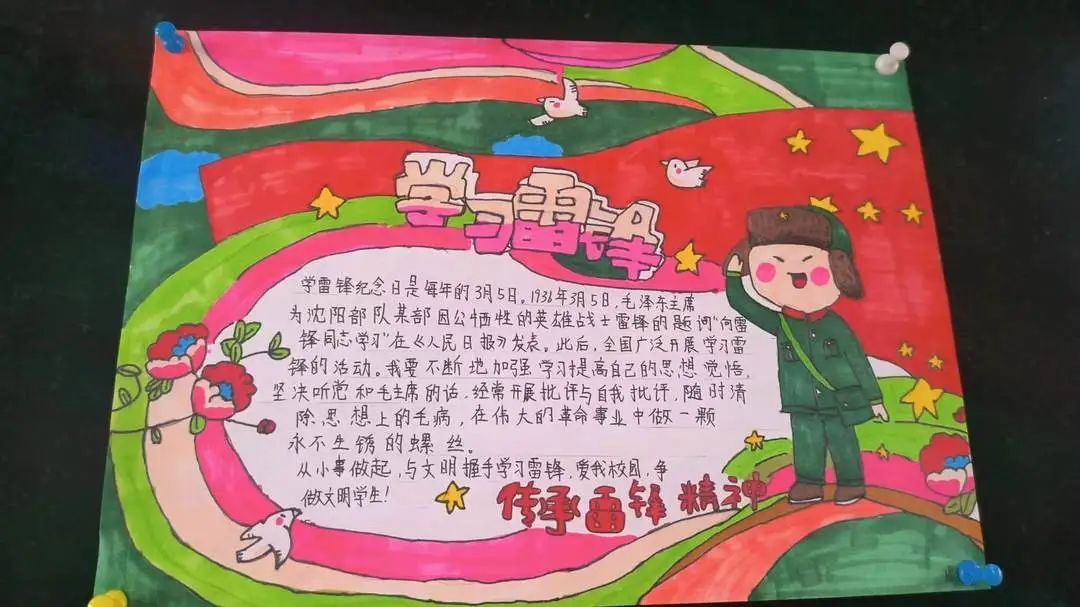 学习雷锋
学雷锋纪念日是每年的3月5日。1936年3月5日,毛泽东主席
为沈阳部队某部因公牺牲的英雄战士雷锋的题词"向雷
锋同志学习"在《人民日报》发表。此后,全国广泛开展学习雷
锋的活动。我要不断地加强学习提高自己的思想觉悟,
坚决听党和毛主席的话,经常开展批评与自我批评,随时清
除思想上的毛病,在伟大的革命事业中做一颗
永不生锈的螺丝。
从小事做起,与文明握手学习雷锋,爱我校园,争
做文明学生!
传承雷锋精神